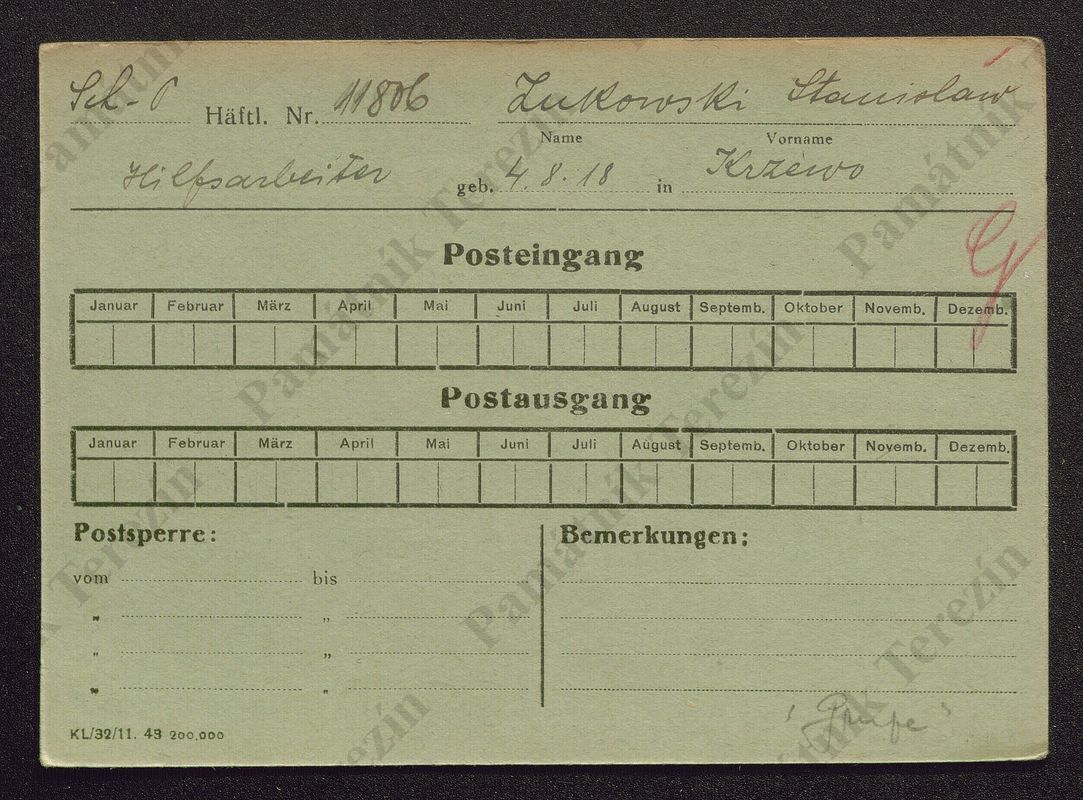 Sch-P Häftl. Nr. 11806 Zukowski Stanisław
Name Vorname
Hilfsarbeiter geb. 4.8.18 in Krzewo
G
Posteingang
Januar Februar März April Mai Juni Juli August Septemb. Oktober Novemb. Dezemb.
Postausgang
Januar Februar März April Mai Juni Juli August Septemb. Oktober Novemb. Dezemb.
Postsperre: Bemerkungen:
vom bis
" "
" "
" "
KL/32/11. 43 200,000
Památník Terezín